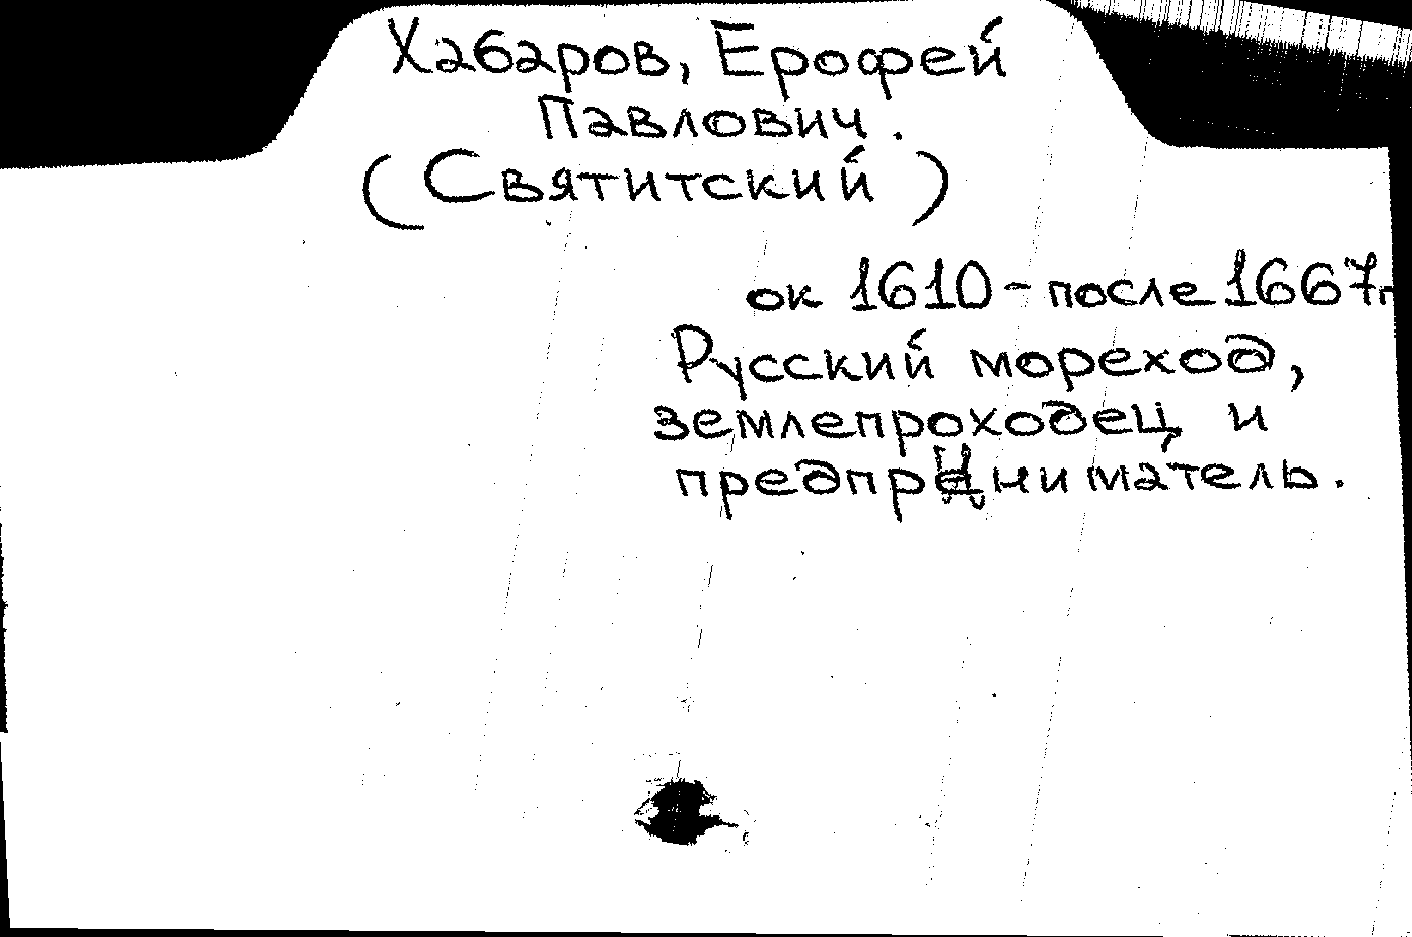 Хабаров, Ерофей
Павлович.
(Святитский)
ок 1610 - после 1667г
Русский мореход,
землепроходец и
предприниматель.